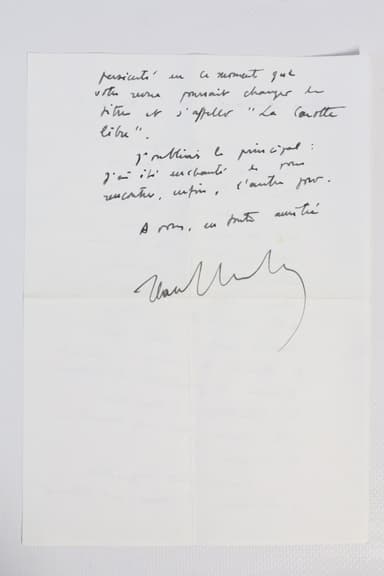 persécuté en ce moment que
votre revue pourrait changer de
titre et s'appeler "La Carotte
libre".
J'oubliais le principal :
J'ai été enchanté de vous
rencontrer, enfin, l'autre jour.
A vous, en toute amitié